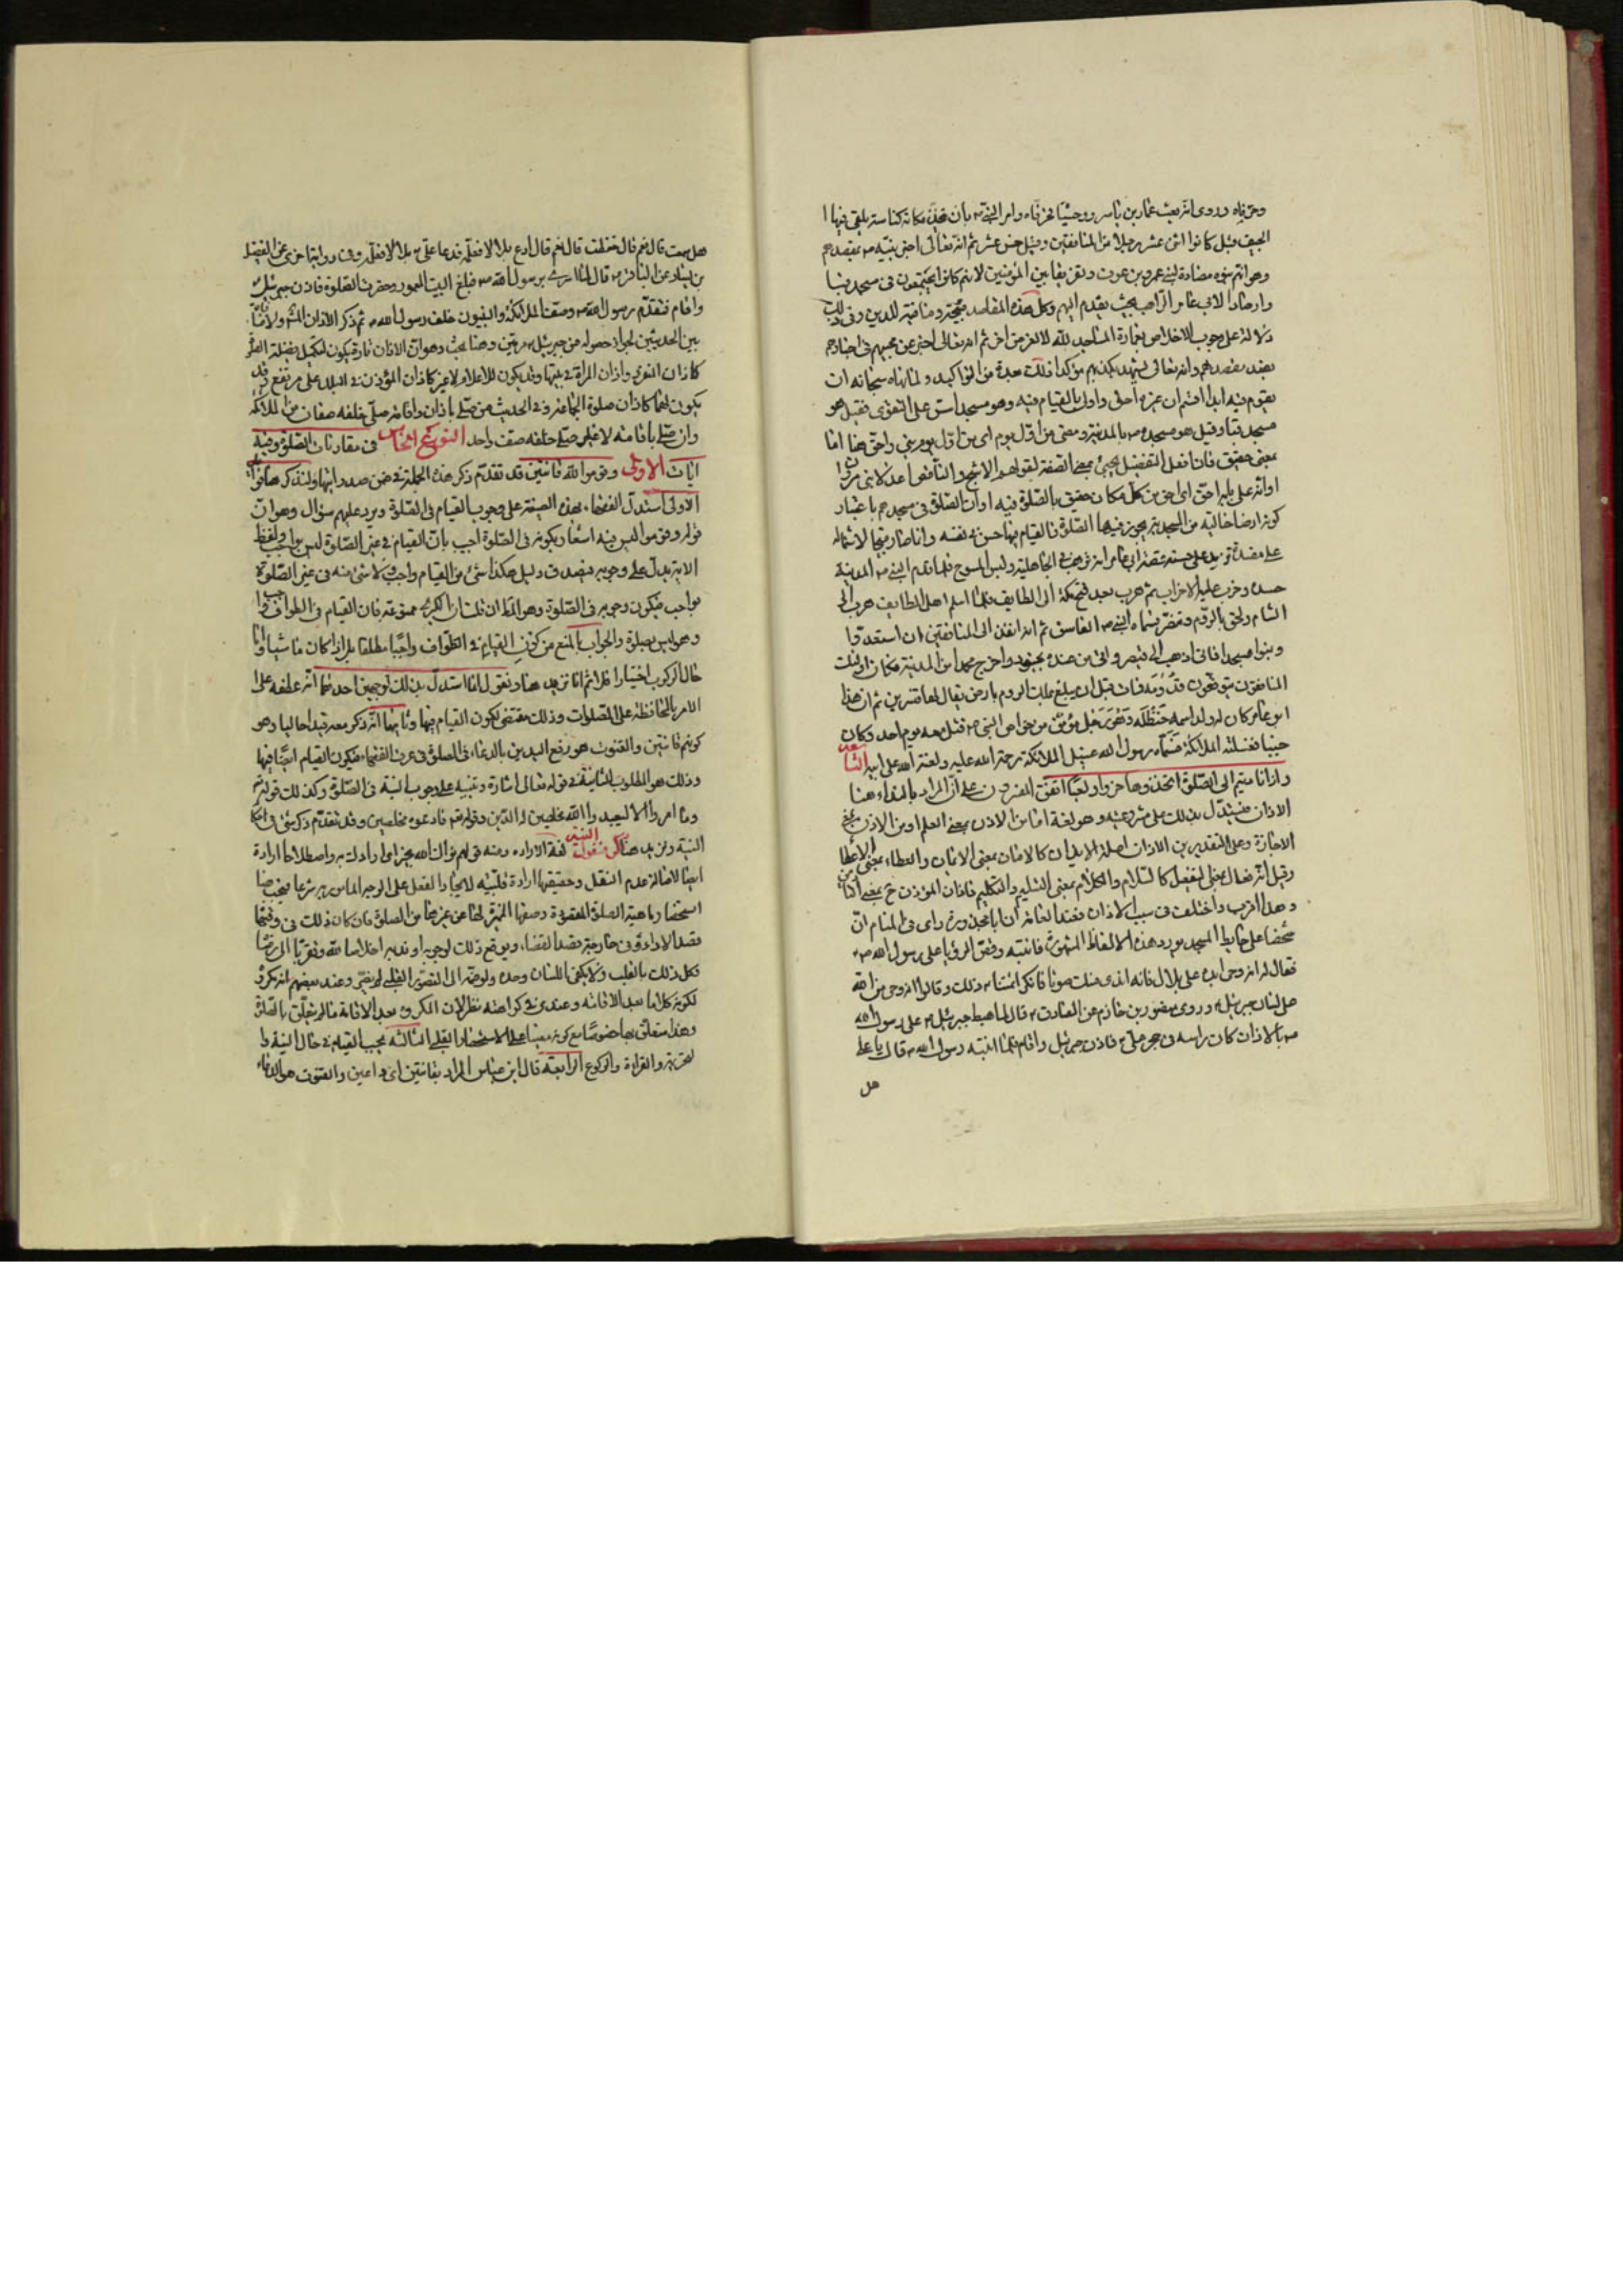 وحرقاه وروى انه بعث عمار بن ياسر ووحشيا فحرقاه وامر النبي ص بان يتخذ مكانه كناسة يلقى فيها ا
الجيف وقيل كانوا اثنى عشر رجلا من المنافقين وقيل خمس عشر ثم انه تعالى اخبر نبيه ص بقصدهم
وهو انهم بنوه مضادة لبنى عمرو بن عوف وتفريقا بين المؤمنين لانهم كانوا يجتمعون فى مسجد قبا
وارصادا لابى عامر الراهب بحيث يقدم اليهم وكل هذه المقاصد قبيحة ومنافية للدين وفى ذلك
دلالة على وجوب الاخلاص بعمارة المساجد لله لا لغرض اخر ثم انه تعالى اخبر عن كذبهم فى اخبارهم
بقصدهم وانه تعالى يشهد بكذبهم مؤكدا ذلك بعدة من التواكيد ولما نهاه سبحانه ان
يقوم فيه ابدا اقسم ان غيره احق واولى بالقيام فيه وهو مسجد اسس على التقوى فقيل هو
مسجد قبا وقيل هو مسجده ص بالمدينة ومعنى من اول يوم اى من اول يوم بنى واحق هنا اما
بمعنى حقيق فان افعل التفضيل يجيئ بمعنى الصفة لقولهم الاشج والناقص اعدلا بنى مروان
او انه على بابه احق اى احق من كل مكان حقيق بالصلوة فيه او ان الصلوة فى مسجدهم باعتبار
كونه ارضا خالية من المسجدية يجوز فيها الصلوة فالقيام فيها حسن فى نفسه وانما صار قبيحا لاشتماله
على مفسدة
حسده وحزب عليه الاحزاب ثم هرب بعد فتح مكة الى الطايف فلما اسلم اهل الطايف هرب الى
الشام ولحق بالروم وتنصر فسماه النبى ص الفاسق ثم انه انفذ الى المنافقين ان استعدوا
وابنوا مسجدا فانى اذهب الى قيصر واتى من عنده بجنود واخرج محمدا من المدينة فكان اولئك
المنافقون يتوقعون قدومه فمات قبل ان يبلغ ملك الروم بارض يقال لها قنسرين ثم ان هذا
ابو عامر كان له ولد اسمه حنظله وهو رجل مؤمن من خواص النبى ص قتل معه يوم احد وكان
جنبا فغسلته الملائكة فسماه رسول الله غسيل الملائكة رحمة الله عليه ولعنة الله على ابيه
واذا ناديتم الى الصلوة اتخذوها هزوا ولعبا اتفق المفسرون على ان المراد بالنداء هنا
الاذان فيستدل بذلك على مشروعيته وهو لغة اما من الاذن بمعنى العلم او من الاذن بمعنى
الاجازة وعلى التقديرين الاذان اصله الايذان كالامان بمعنى الايمان والعطاء بمعنى الاعطا
وقيل انه فعال بمعنى التفعيل كالسلام والكلام بمعنى التسليم والتكليم فاذان المؤذن ح بمعنى
وهذا اقرب واختلف فى سبب الاذان فعند العامة ان ابا محذورة راى فى المنام ان
شخصا على حايط المسجد يورد هذه الالفاظ المشهورة فانتبه وقص الرؤيا على رسول الله ص
فقال له انه وحى ابده على بلال فانه اندى منك صوتا فانكر ائمتنا ذلك وقالوا انه وحى من الله
على لسان جبرئيل ع وروى منصور بن حازم عن الصادق ع قال لما هبط جبرئيل ع على رسول الله
ص بالاذان كان راسه فى حجر على ع فاذن جبرئيل واقام فلما انتبه رسول الله ص قال يا على
هل
هل سمعت قال نعم قال حفظت قال نعم قال ادع بلالا فعلمه فدعا على ع بلالا فعلمه وفى رواية اخرى عن الفضيل
بن يسار عن الباقر ع قال لما اسرى برسول الله ص فبلغ البيت المعمور وحضرت الصلوة فاذن جبرئيل
واقام فتقدم رسول الله ص وصف الملائكة والنبيون خلف رسول الله ص ثم ذكر الاذان
بين الحديثين لجواز حصوله من جبرئيل ع مرتين وهنا بحث وهو ان الاذان تارة يكون لتكميل فضيلة الصلوة
كاذان المنفرد واذان المراة فى بيتها وقد يكون للاعلام لا غير كاذان المؤذن فى البلد على مرتفع وقد
يكون لهما كاذان صلوة الجماعة وفى الحديث من صلى باذان واقامة صلى خلفه صفان من الملائكة
وان صلى باقامة لا غير صلى خلفه صف واحد النوع الخامس فى مقارنات الصلوة وفيه
ايات الاولى وقوموا لله قانتين قد تقدم ذكر هذه الجملة فى ضمن صدر ايتها ولنذكر هنا
الاولى استدل الفقهاء بهذه الصيغة على وجوب القيام فى الصلوة ويرد عليهم سؤال وهو ان
قوله وقوموا ليس فيه اشعار بكونه فى الصلوة اجيب بان القيام فى غير الصلوة ليس بواجب ولفظ
الاية يدل على وجوبه فيصدق دليل هكذا شئ من القيام واجب ولا شئ منه فى غير الصلوة
بواجب فيكون وجوبه فى الصلوة وهو المط ان قلت ان الكبرى ممنوعة فان القيام فى الطواف واجب
وهو ليس بصلوة والجواب بالمنع من كون القيام فى الطواف واجبا مطلقا بل اذا كان ماشيا
حال الركوب اختيارا فلا ثم انا نزيد هنا ونقول انما استدل بذلك لوجهين احدهما انه عطفه على
الامر بالمحافظة على الصلوات وذلك مقتضى لكون القيام فيها وثانيهما انه ذكر معه قيدا حاليا وهو
كونهم قانتين والقنوت هو رفع اليدين بالدعاء فى الصلوة فى عرف الفقهاء فيكون القيام ايضا فيها
وذلك هو المطلوب الثانية فى قوله تعالى اشارة وتنبيه على وجوب النية فى الصلوة وكذلك قوله تم
وما امروا الا ليعبدوا الله مخلصين له الدين وقوله تعم فادعوه مخلصين وقد تقدم ذكر شئ من احكام
النية ونزيد هنا فنقول النية لغة الارادة ومنه قولهم نواك الله بخير اى ارادك به واصطلاحا ارادة
ايضا لاصالة عدم النقل وحقيقتها ارادة قلبية لايجاد الفعل على الوجه المامور به شرعا فيجب
استحضار ماهية الصلوة المقصودة وصفتها المميزة لها عن غيرها من الصلوة فان كان ذلك فى وقتها
فقصد الاداء وفى خارجه قصد القضاء ويوقع ذلك لوجوبه او ندبه اخلاصا لله وتقربا الى رضاه
فكل ذلك بالقلب ولا يكفى اللسان وحده ولو ضمه الى التصور القلبى لم يضر وعند بعضهم انه مكروه
لكونه كلاما بعد الاقامة وعندى فى كراهته نظر لان المكروه بعد الاقامة ما لم يتعلق بالصلوة
وهذا متعلق بها خصوصا مع كونه معينا على الاستحضار القلبى الثالثه يجب القيام فى حال النية و
التحريمة والقراءة والركوع الرابعة قال ابن عباس المراد بقانتين اى داعين والقنوت هو الدعاء